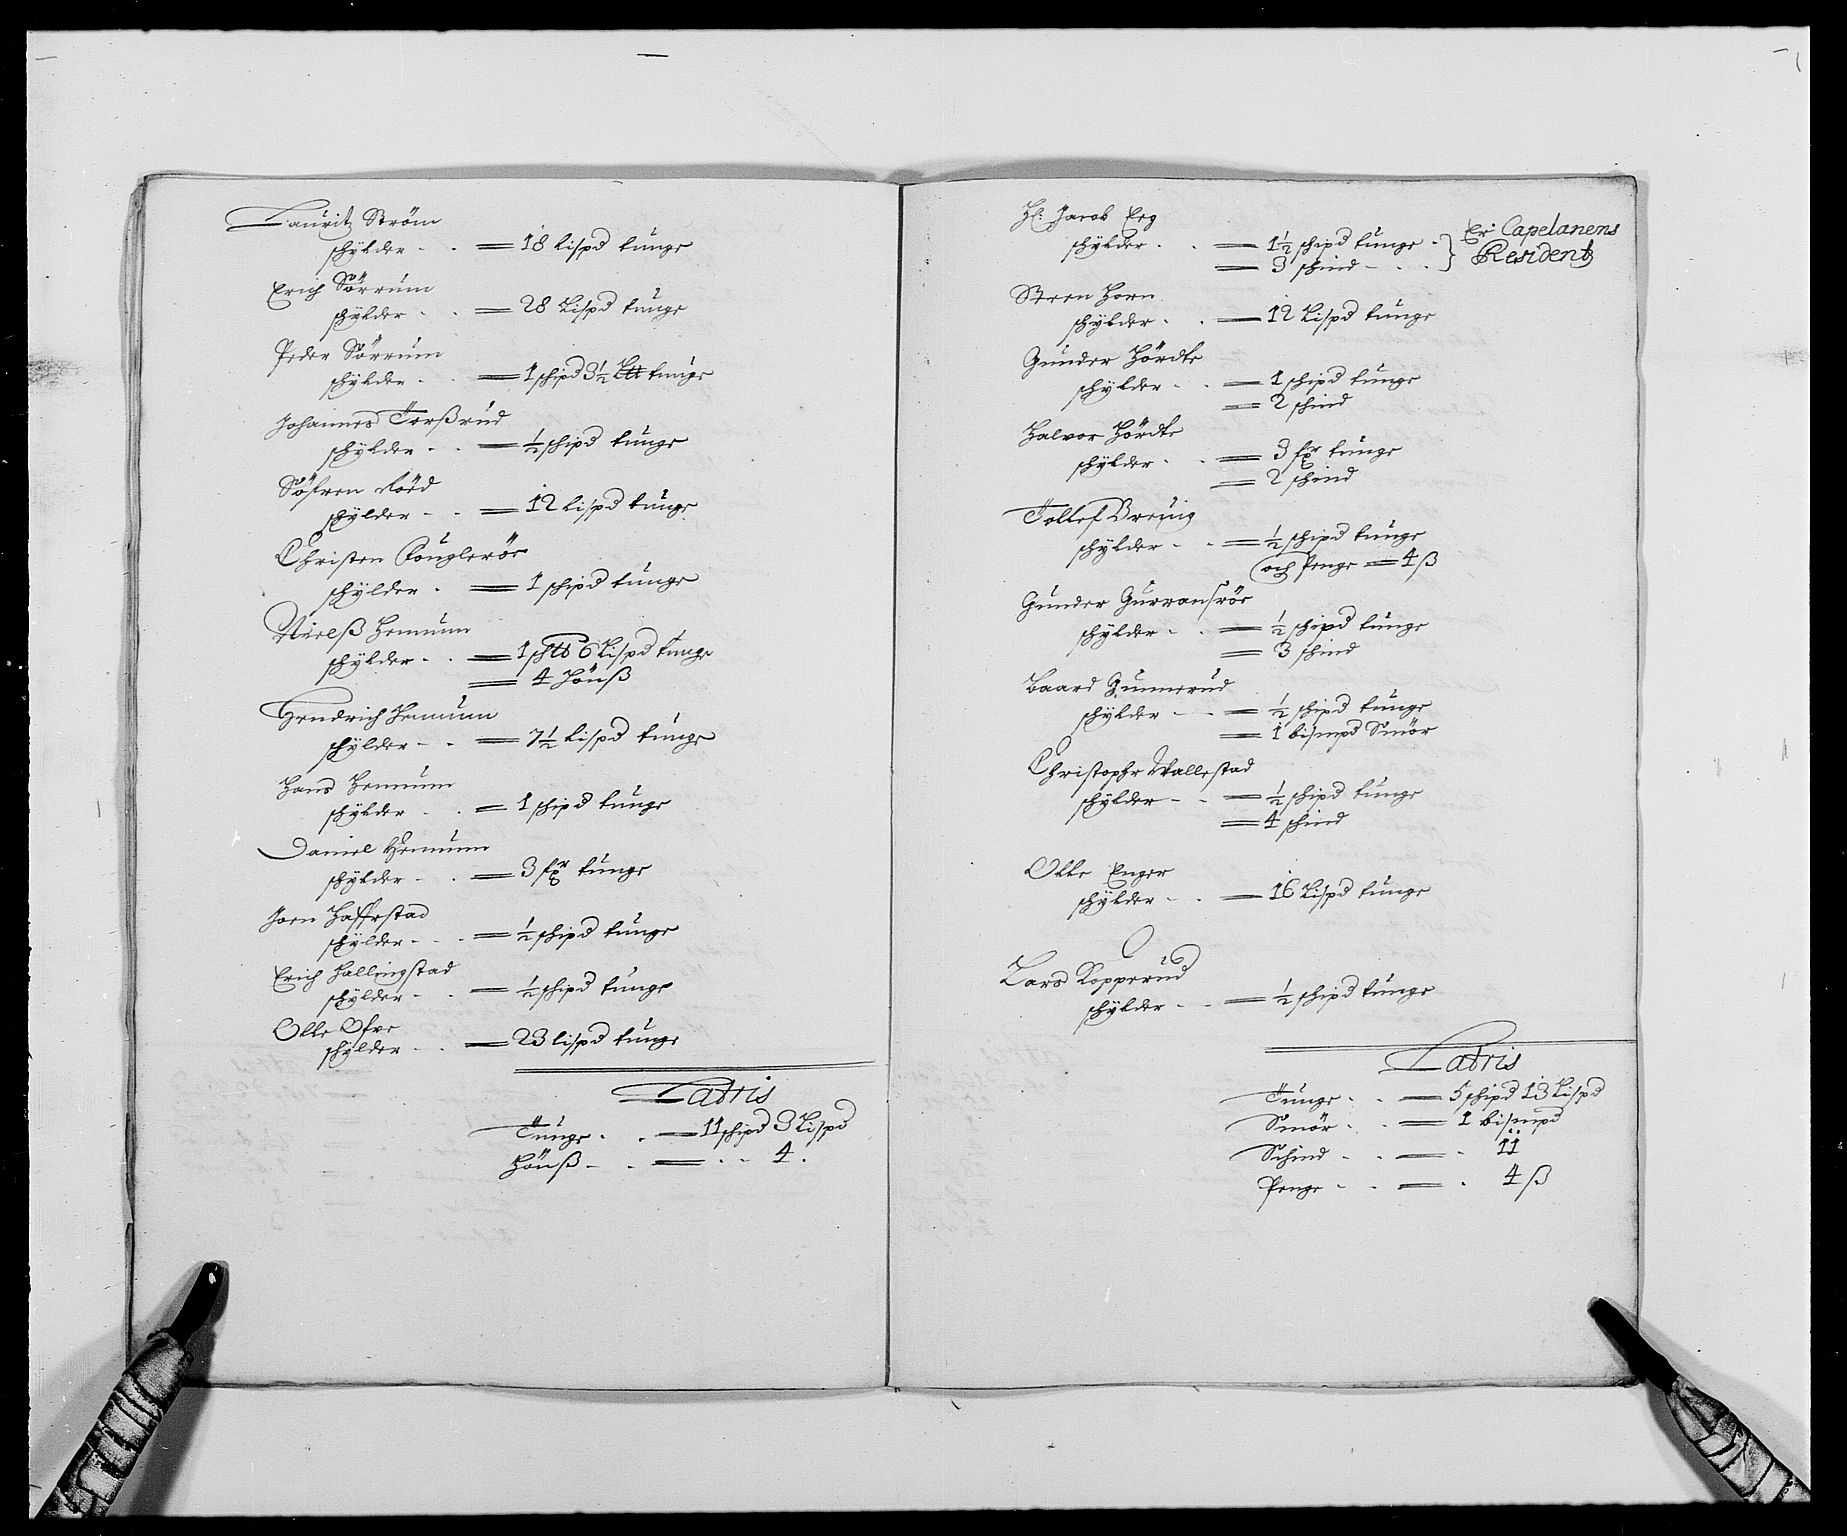 Lauritz Ström
schÿlder - - = 18 lispd tunge
Erich Sörrum
schÿlder - - = 28 Lispd tunge
Peder Sörrum
schÿlder - - = 1 schipd 3½ Ltt tunge
Johannes Torßrud
schÿlder - - = ½ schipd tunge
Söfren Röed
schÿlder - - = 12 lispd tunge
Christen Fougleröe
schÿlder - = 1 schipd tunge
Nielß Hennum
schÿlder - - = 1 schtt 6 Lispd tunge
= 4 Hönß
Hendrich Hennum
schÿlder - - = 7½ Lispd tunge
Hans Hennum
schÿlder - - = 1 schipd tunge
Daniel Hennum
schÿlder - - = 3 fxr tunge
Joen Haffrstad
schÿlder - - = ½ schipd tunge
Erich Hallingstad
schÿlder - - = ½ schipd tunge
Olle Ofre
schÿlder - - = 23 lispd tunge
Latris
Tunge - - = 11 schipd 3 Lispd
Hönß - - = - - 4.
Hl: Jacob Eeg
schÿlder - - = 1½ schipd tunge - } Er: Capelanens
= 3 schind - - - Residentz
Steen Horn
schÿlder - - = 12 Lispd tunge
Gunder Hördte
schÿlder - - = 1 schipd tunge
= 2 schind
Halvor Hördte
schÿlder - - = 3 fxr tunge
= 2 schind
Tollef Breÿng
schÿlder - - = ½ schipd tunge
och Penge = 4 ß
Gunder Gurransröe
schÿlder - - = ½ schipd tunge
= 3 schind
Baard Gunnerud
schÿlder - - = ½ schipd tunge
= 1 bismpd Smör
Christopher Wallestad
schÿlder - - = ½ schipd tunge
= 4 schind
Olle Enger
schÿlder - - = 16 Lispd tunge
Lars Kopperud
schÿlder - - = ½ schipd tunge
Latris
Tunge - - = 5 schipd 13 Lispd
Smör - - = 1 bismpd
Schind - - = - 11
Penge - - = - 4 ß